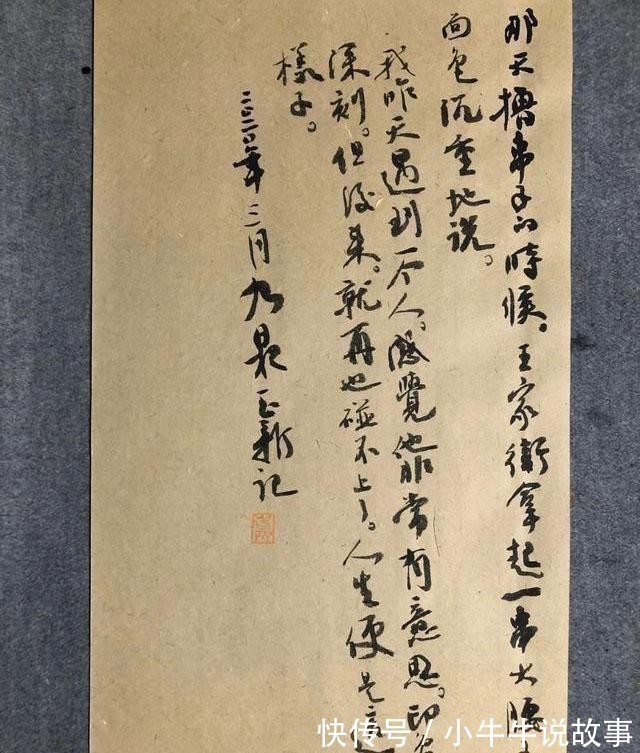 那天擼串子的時候。王家衛拿起一串大
面色沉重地说。
我昨天遇到一个人。感覺他非常有意思。印
深刻。但後来。就再也碰不上了。人生便是這
樣子。
二〇二〇年三月 记
快传号 / 小牛牛说故事